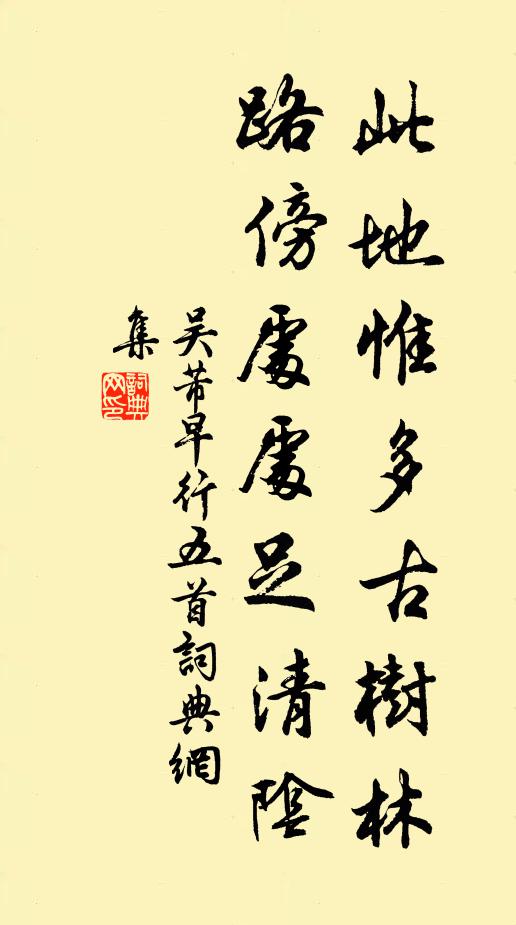 此地惟多古樹林
路傍處處足清陰
吴芾早行五首詞典網
集
詞典網印